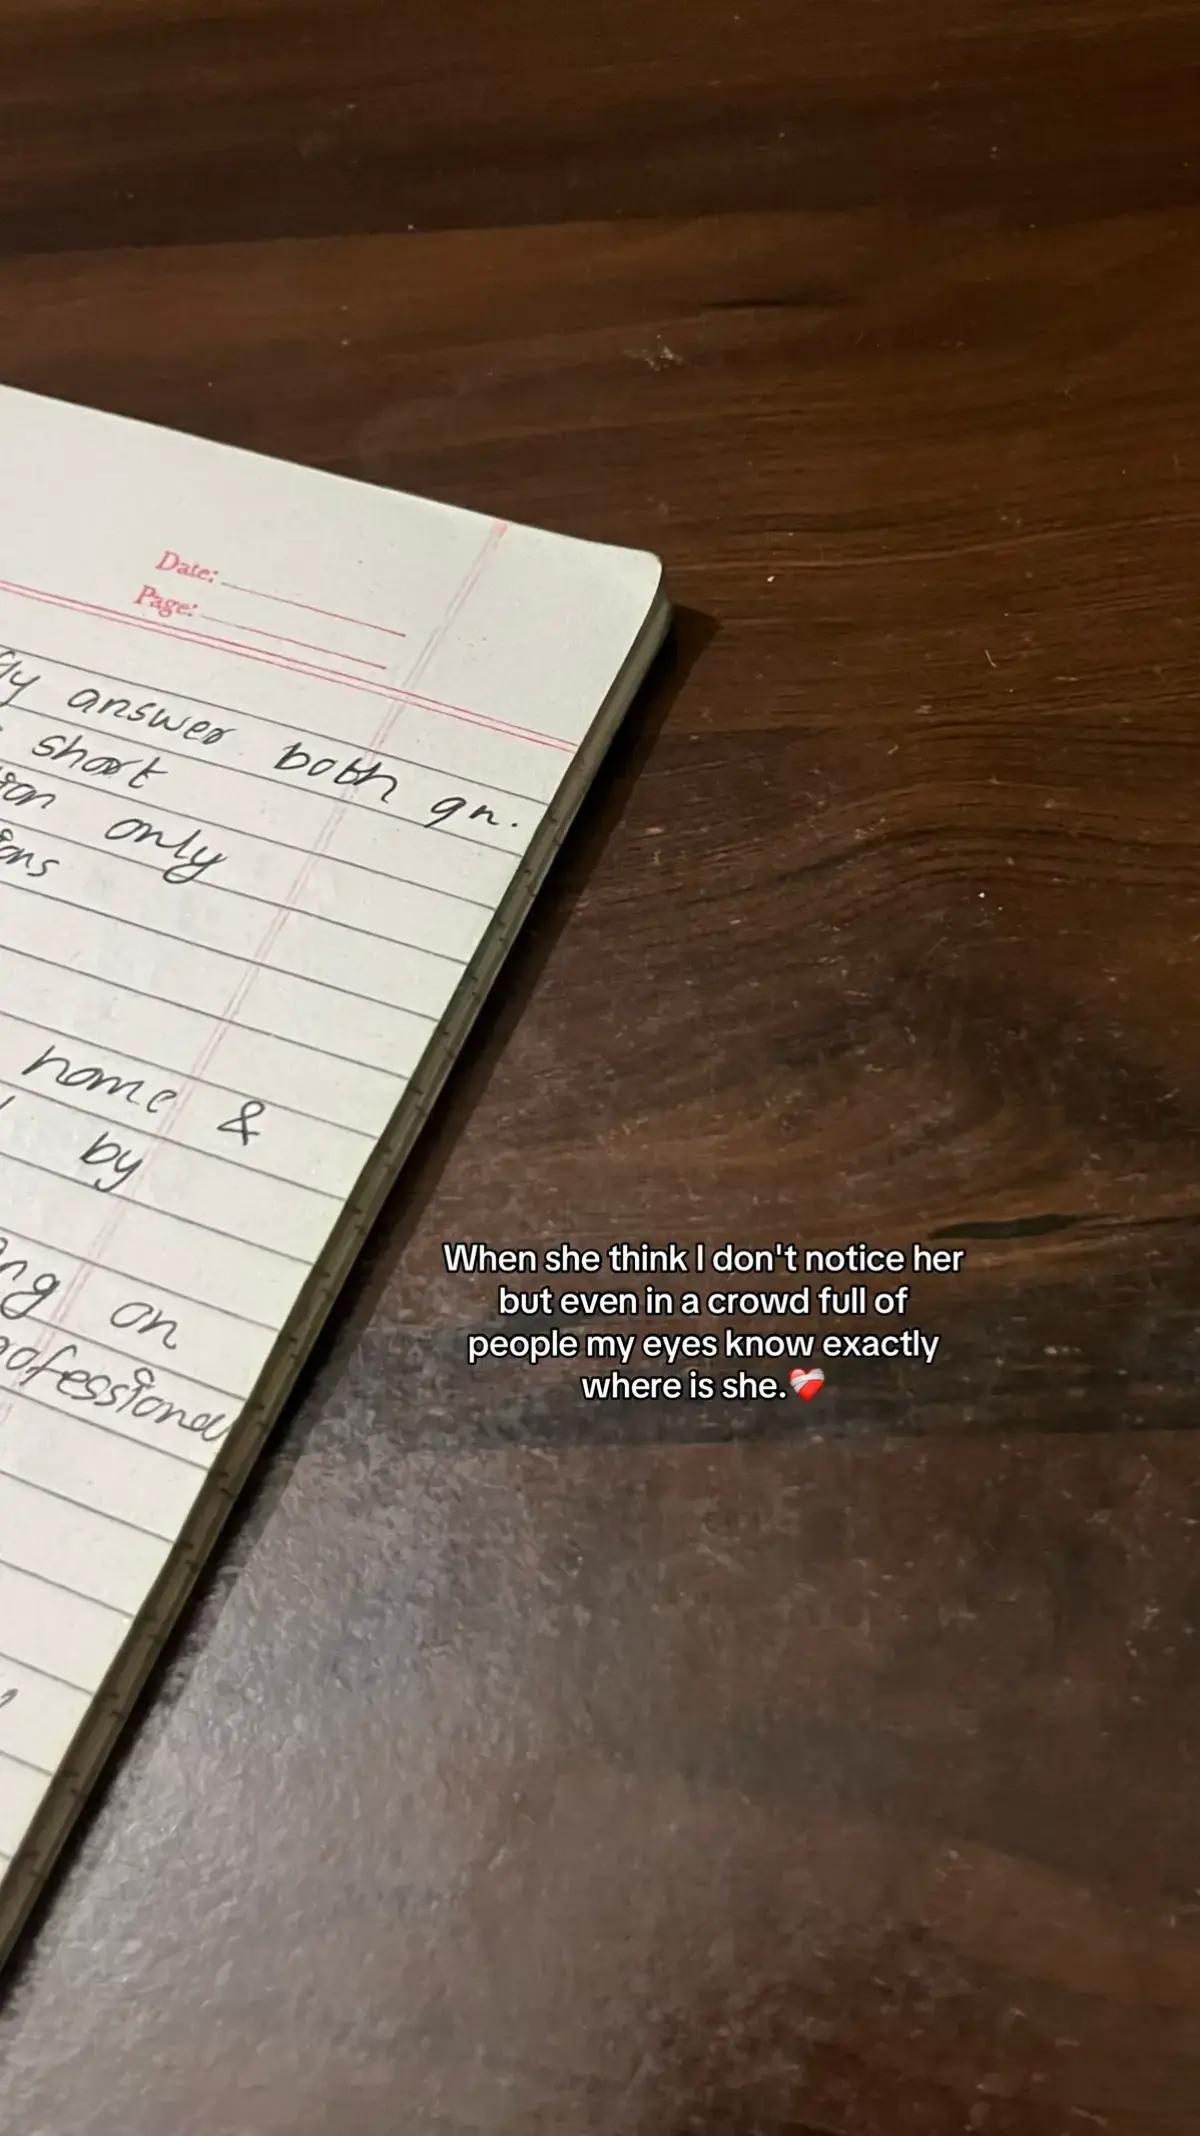 Date:
Page:
answer both qn.
short
only
home &
by
on
When she think I don't notice her
but even in a crowd full of
people my eyes know exactly
where is she.❤️‍🩹